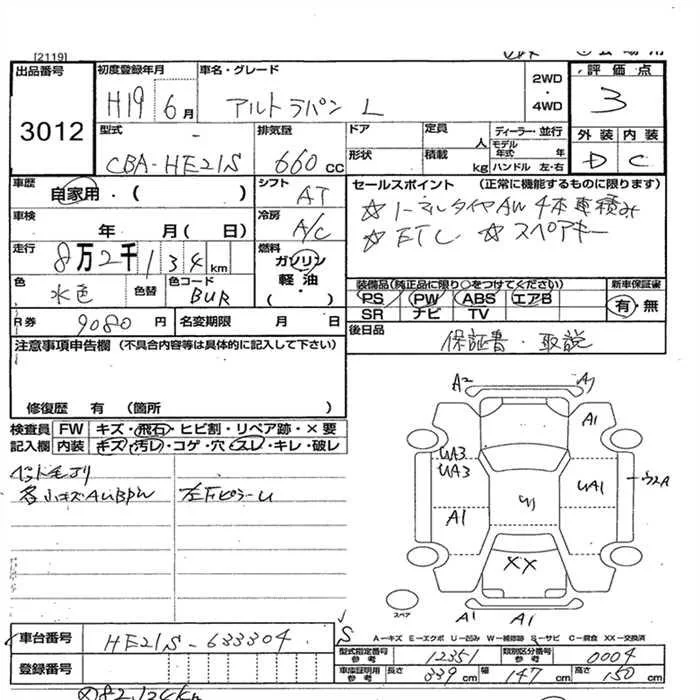 [2119]
出品番号 3012
初度登録年月 H19 6月
車名・グレード アルトラパン L
2WD・4WD
評価点 3
外装 D 内装 C
型式 CBA-HE21S
排気量 660cc
ドア 形状
定員 人 積載 kg
ディーラー・並行
モデル年式 年
ハンドル 左・右
車歴 自家用・( )
シフト AT
セールスポイント (正常に機能するものに限ります)
☆ノーマルタイヤAW 4本車積み
☆ETC ☆スペアキー
車検 年 月(日)
冷房 A/C
走行 8万2千134km
燃料 ガソリン 軽油 ・( )
色 水色 色替 色コード BUR
装備品(純正品に限り○をつけてください)
PS PW ABS エアB
SR ナビ TV
新車保証書 有・無
R券 9080円
名変期限 月 日
後日品 保証書・取説
注意事項申告欄 (不具合内容等は具体的に記入して下さい)
修復歴 有 (箇所 )
検査員記入欄
FW キズ・飛石・ヒビ割・リペア跡・×要
内装 キズ・汚レ・コゲ・穴・スレ・キレ・破レ
各小キズAUBPW
左Fピラーu
A2
A1
UA3
UA3
A1
UA1
W
XX
A1 A1
スペアー
S
A−キズ E−エクボ U−凹み W−補修跡 S−サビ C−腐食 XX−交換済
車台番号 HE21S-633304
型式指定番号参考 12351 類別区分番号参考 0004
登録番号
車庫証明用参考 長さ 339cm 幅 147cm 高さ 150cm
82,134km